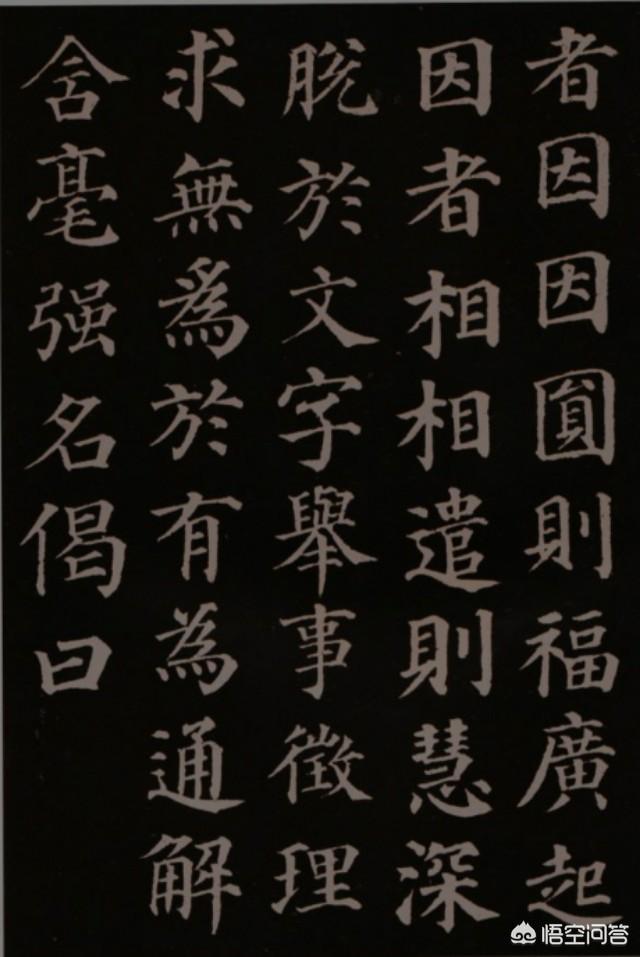 者因因圓則福廣起
因者相相遣則慧深
脫於文字舉事徵理
求無爲於有為通解
含毫强名偈曰
悟空问答